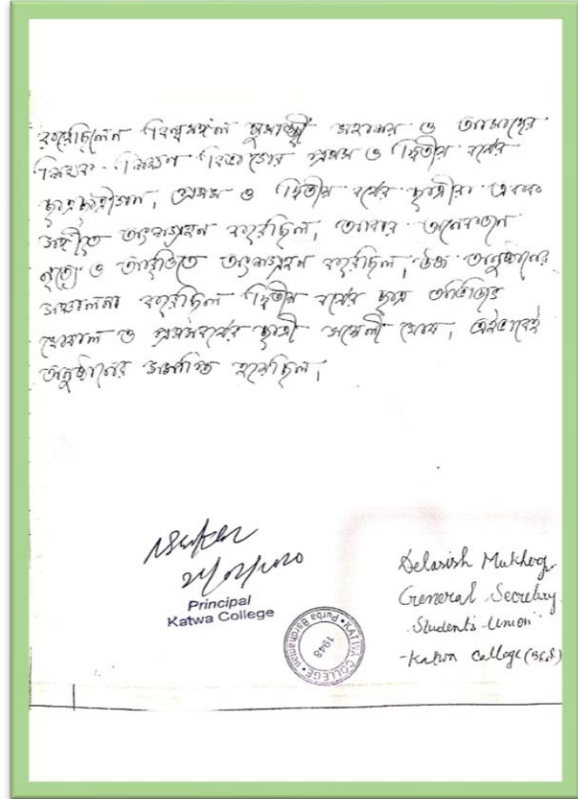 করেছিলেন বিশ্বমঙ্গল গোস্বামী মহাশয় ও আমাদের
শিক্ষক-শিক্ষণ বিভাগের প্রথম ও দ্বিতীয় বর্ষের
ছাত্রছাত্রীগণ। প্রথম ও দ্বিতীয় বর্ষের ছাত্রীরা একক
সঙ্গীতে অংশগ্রহণ করেছিল, আবার অনেকজন
নৃত্যে ও আবৃত্তিতে অংশগ্রহণ করেছিল। উক্ত অনুষ্ঠানের
সঞ্চালনা করেছিল দ্বিতীয় বর্ষের ছাত্র অভিজিৎ
ঘোষাল ও প্রথমবর্ষের ছাত্রী ঘোষ। এইভাবেই
অনুষ্ঠানের সমাপ্তি হয়েছিল।
Principal
Katwa College
KATWA COLLEGE • Purba Bardhaman • 1948
Debasish
General Secretary
Students Union
Katwa College